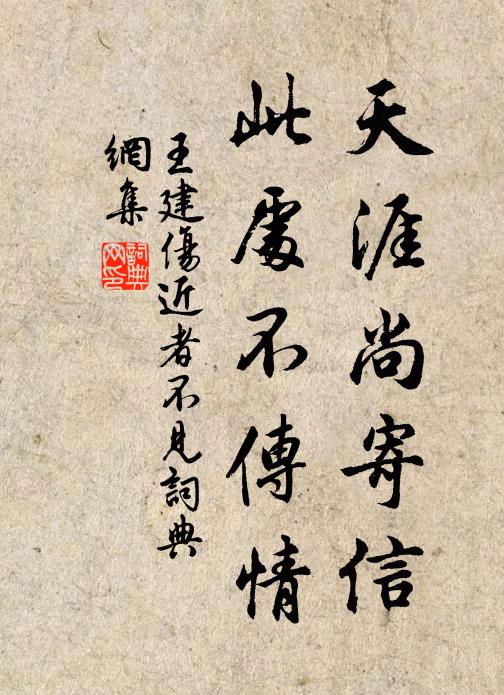 天涯尚寄信
此處不傳情
王建傷近者不見詞典
網集
詞典
网印